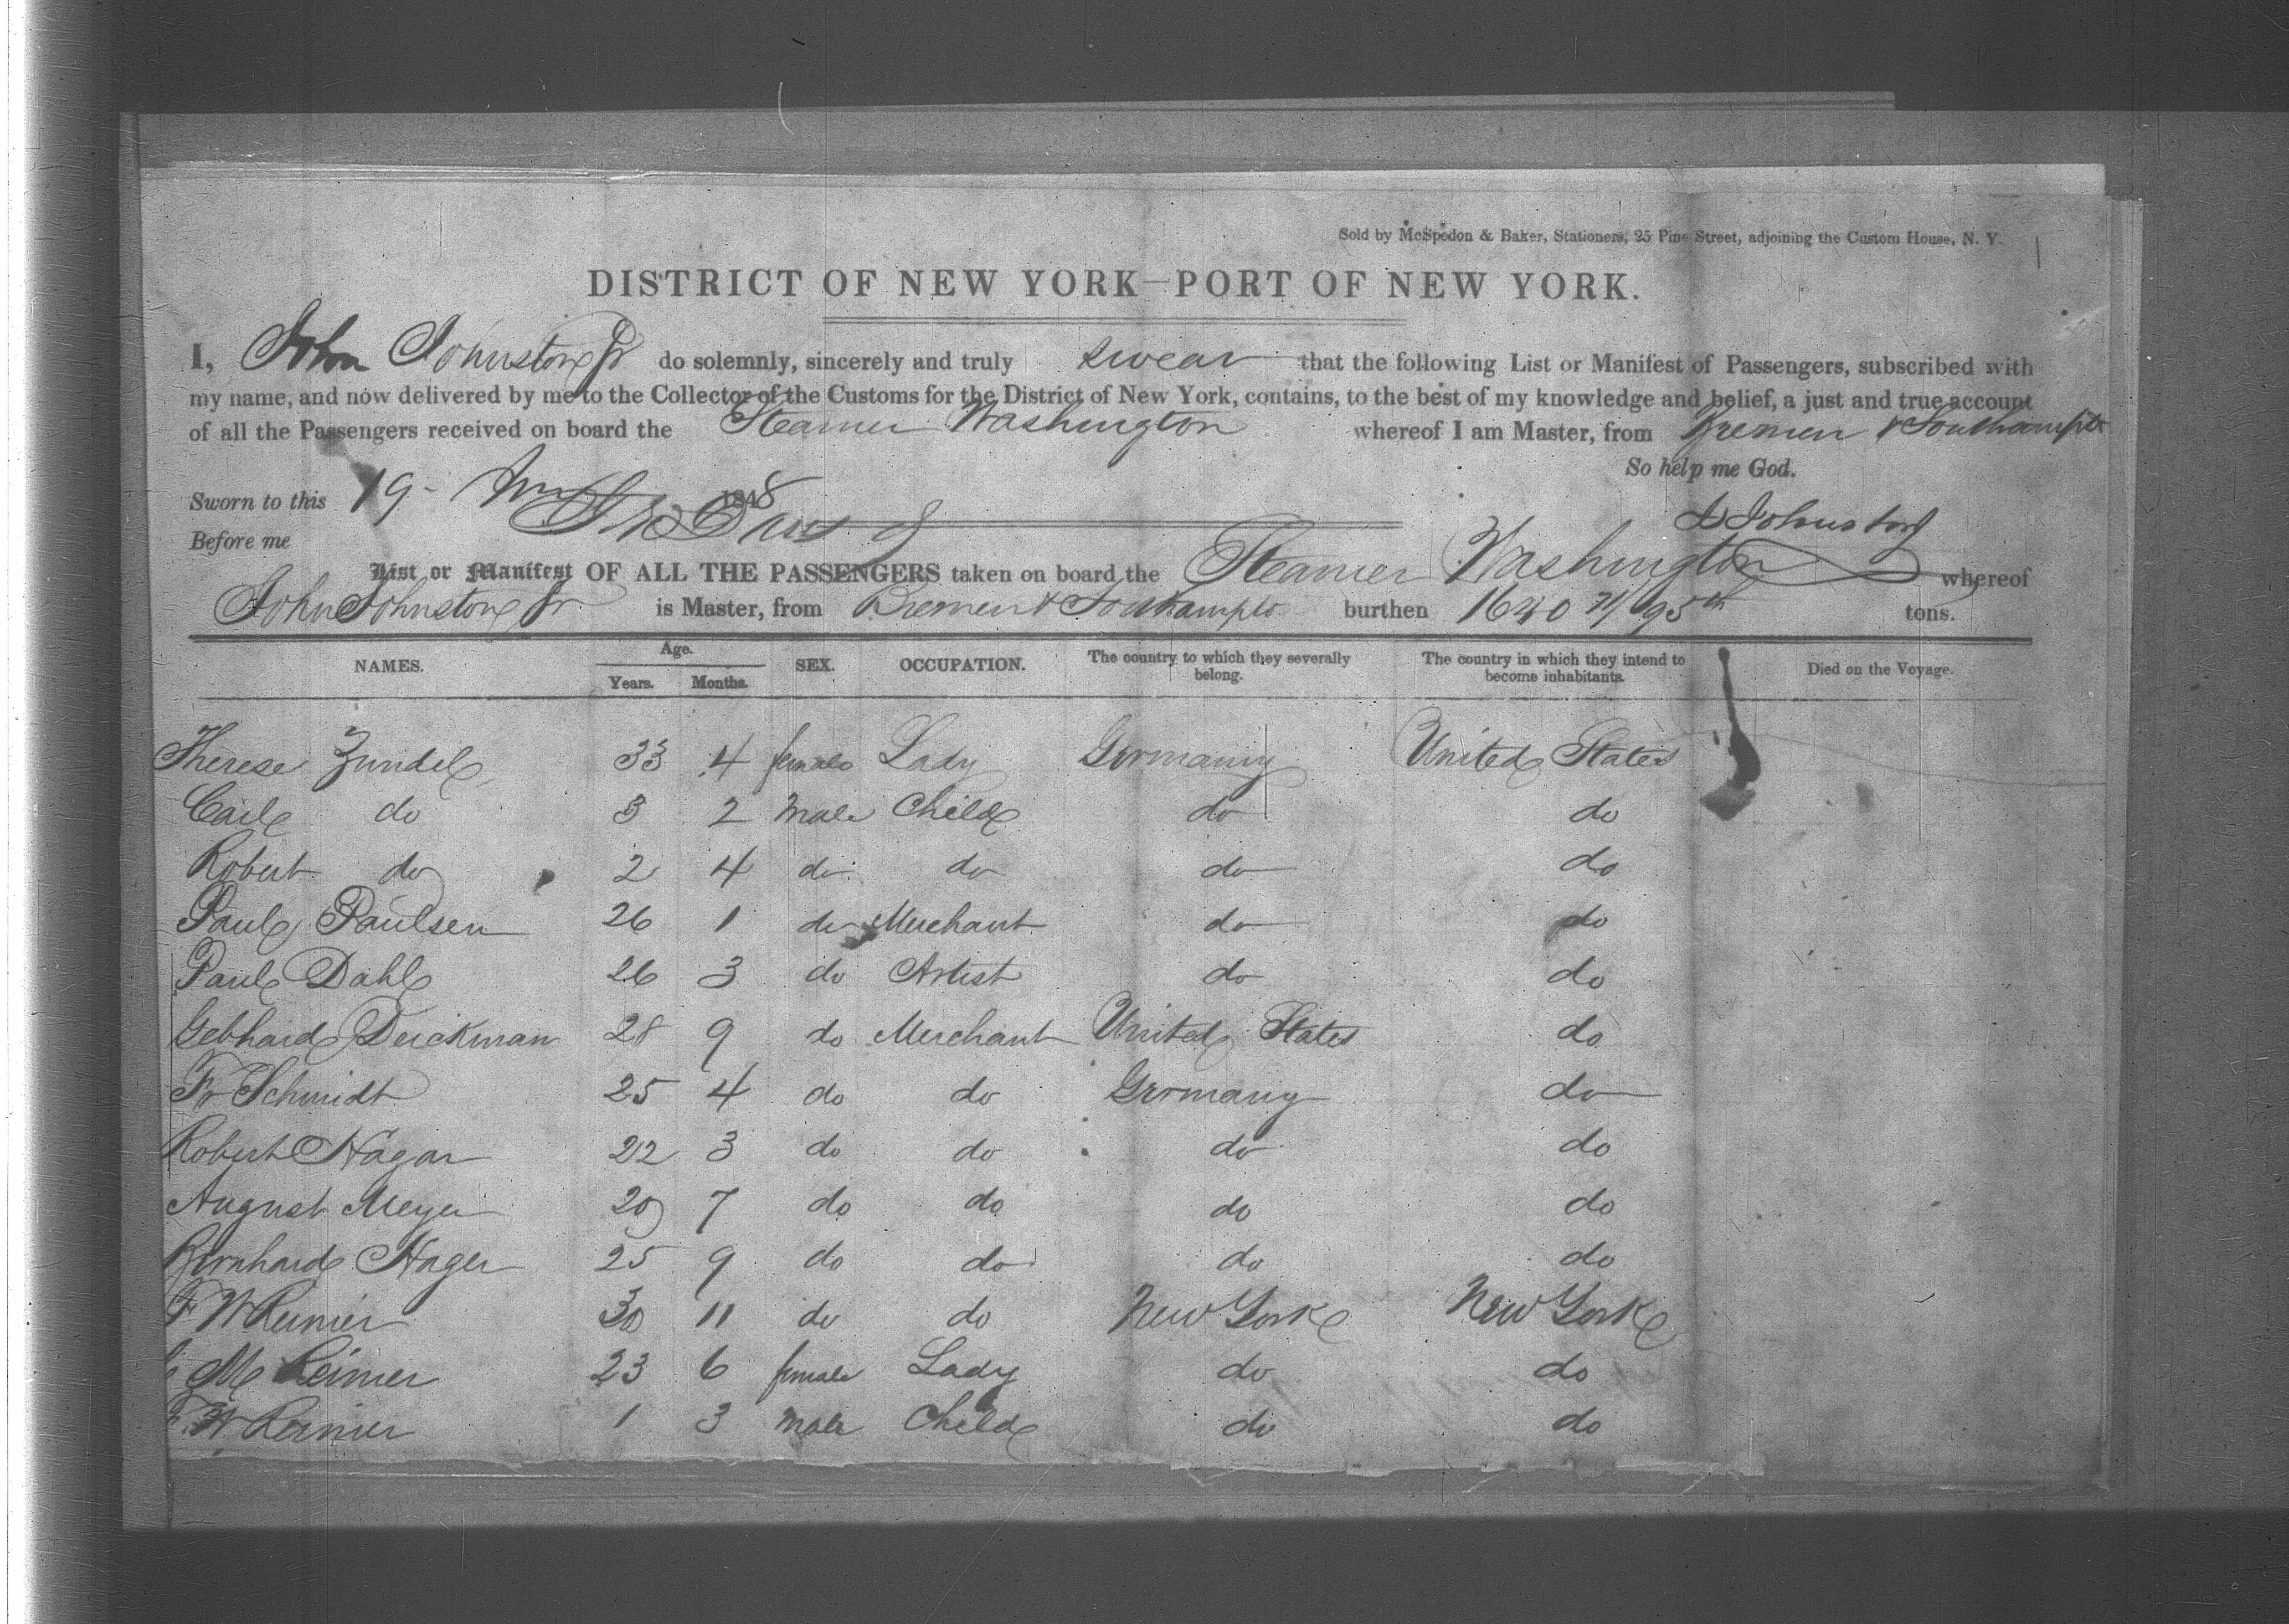 Sold by McSpedon & Baker, Stationers, 25 Pine Street, adjoining the Custom House, N. Y.
DISTRICT OF NEW YORK—PORT OF NEW YORK.
I, John Johnston Jr do solemnly, sincerely and truly swear that the following List or Manifest of Passengers, subscribed with
my name, and now delivered by me to the Collector of the Customs for the District of New York, contains, to the best of my knowledge and belief, a just and true account
of all the Passengers received on board the Steamer Washington whereof I am Master, from Bremen & Southampton
So help me God.
Sworn to this 19- 1848
Johnston
Before me
List or Manifest OF ALL THE PASSENGERS taken on board the Steamer Washington whereof
John Johnston Jr is Master, from Bremen & Southampton burthen 1640 71/95th tons.
NAMES. Age. Years. Months. SEX. OCCUPATION. The country to which they severally belong. The country in which they intend to become inhabitants. Died on the Voyage.
Therese Zundel 33 4 female Lady Germany United States
Carl do 3 2 male Child do do
Robert do 2 4 do do do do
Paul Paulsen 26 1 do Merchant do do
Paul Dahl 26 3 do Artist do do
Gebhard Deickman 28 9 do Merchant United States do
Fr Schmidt 25 4 do do Germany do
Robert Hagar 22 3 do do do do
August Meyer 20 7 do do do do
Bernhard Hager 25 9 do do do do
F W Reimer 30 11 do do New York New York
M Reimer 23 6 female Lady do do
F W Reimer 1 3 male Child do do